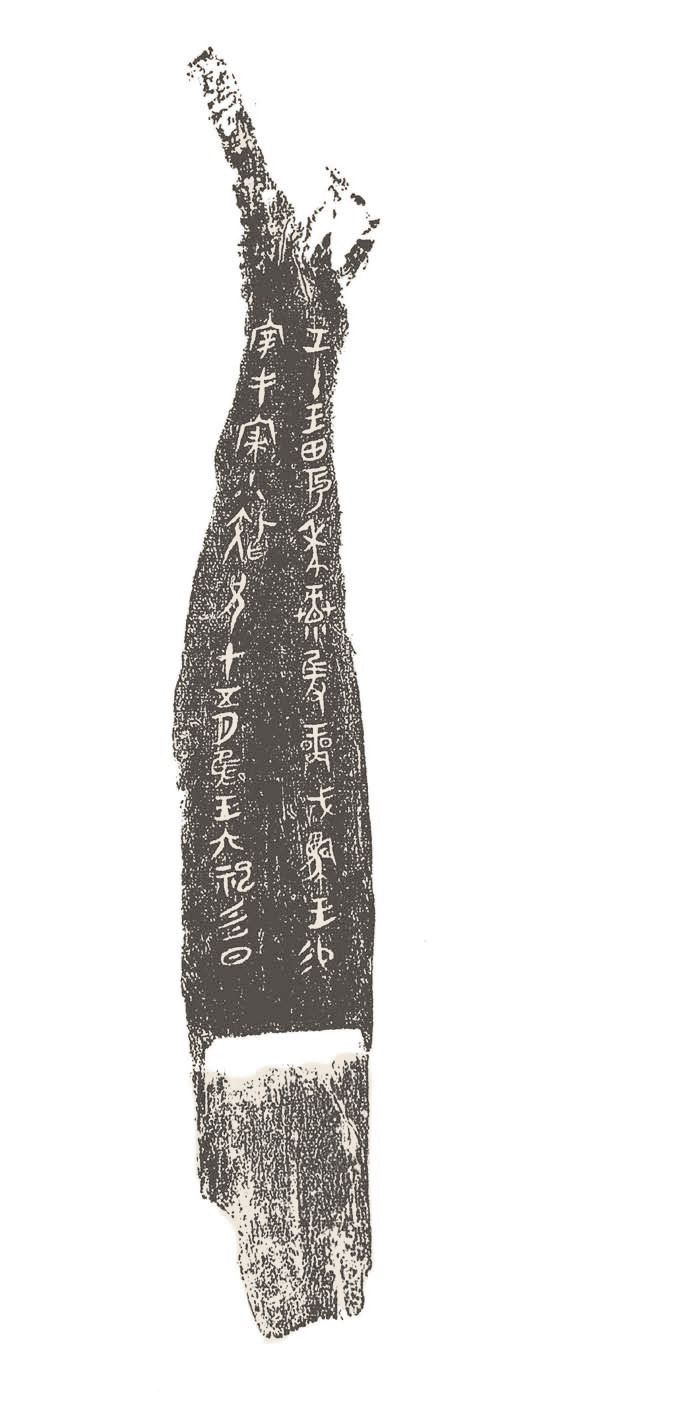 壬午王田于麥彔隻商戠兕王易
宰丰寑小兄才五月隹王六祀彡日